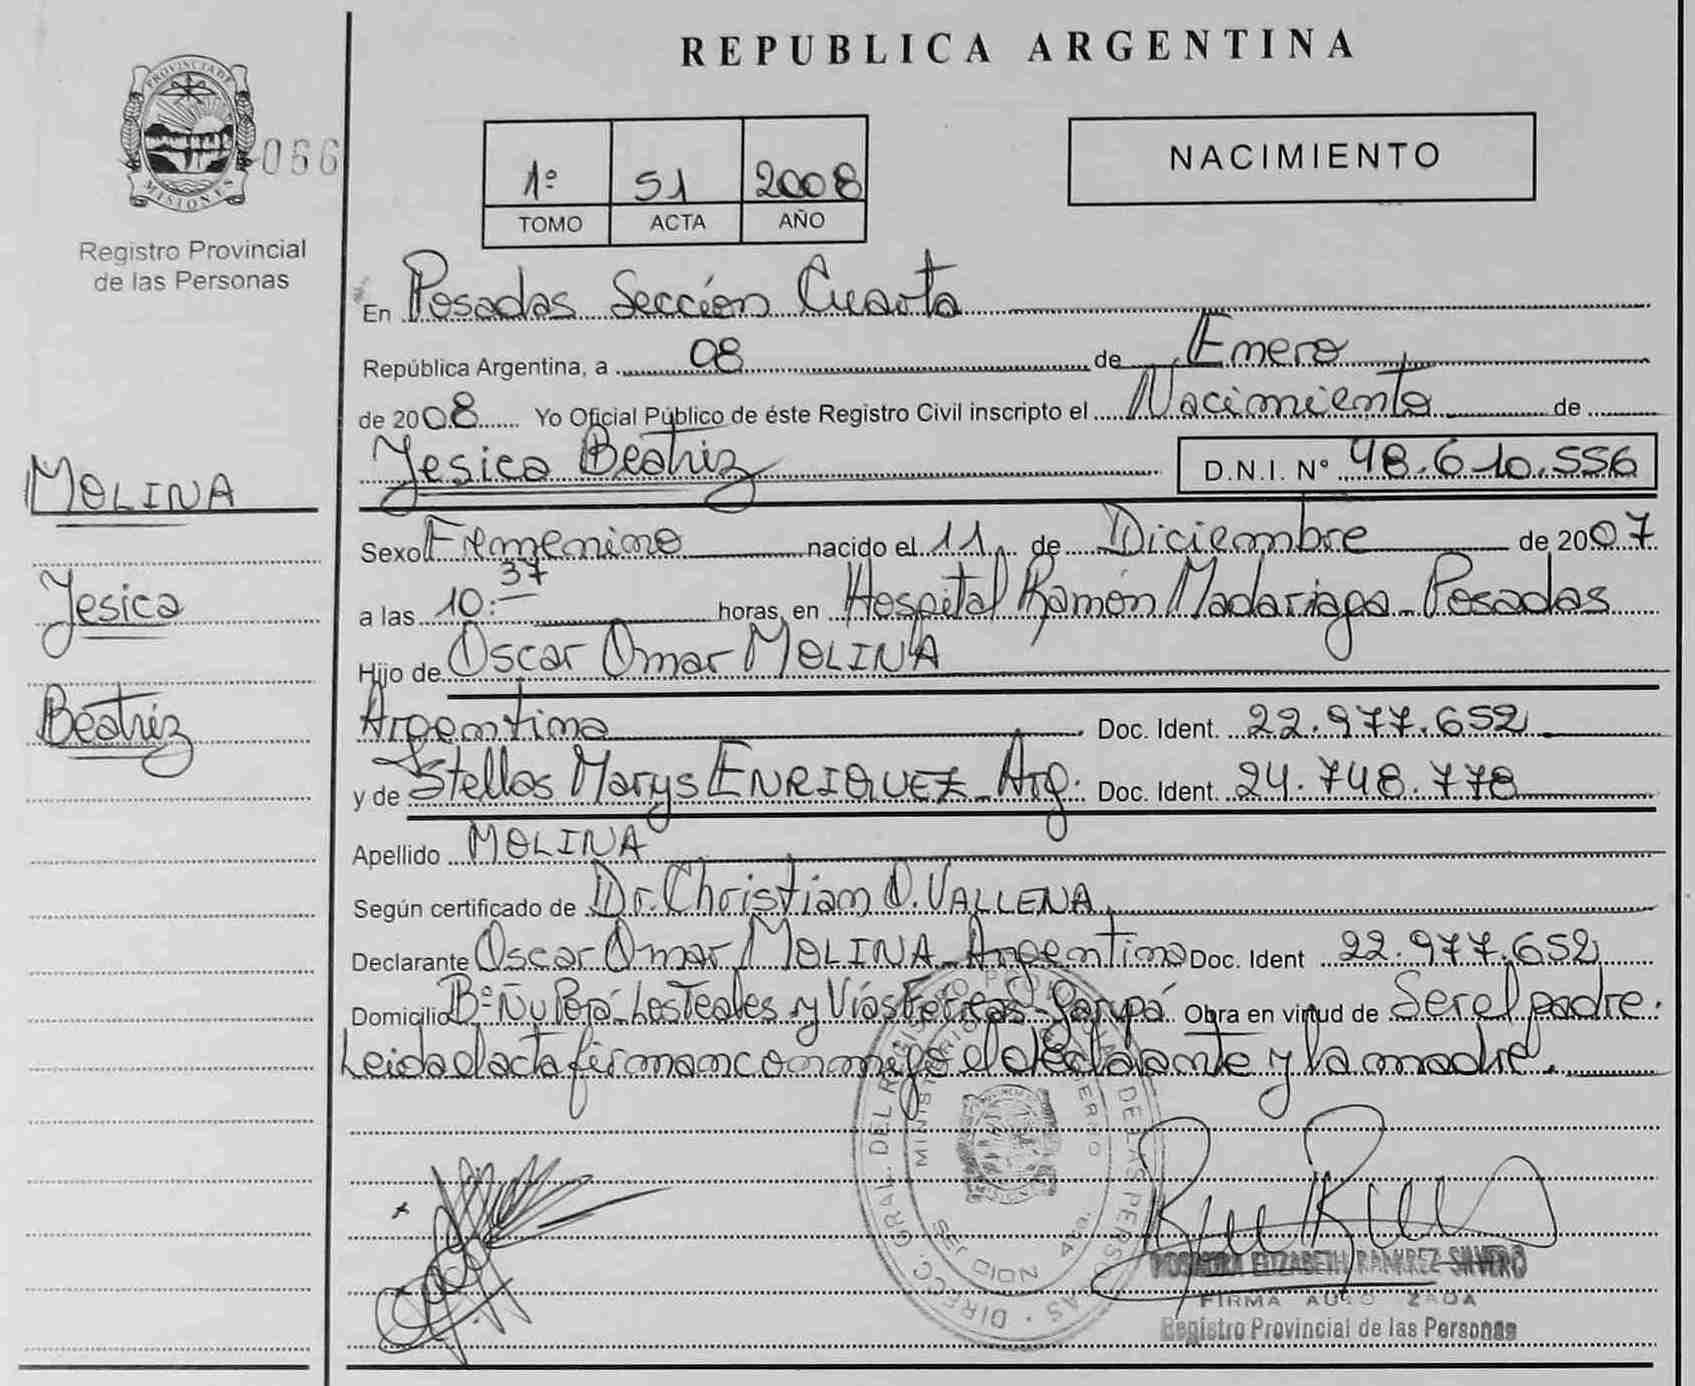 REPUBLICA ARGENTINA
PROVINCIA DE
MISIONES
066
Registro Provincial
de las Personas
1º 51 2008
TOMO ACTA AÑO
NACIMIENTO
En Posadas Sección Cuarta
República Argentina, a 08 de Enero
de 2008 Yo Oficial Público de éste Registro Civil inscripto el Nacimiento de
Yesica Beatriz D.N.I. Nº 48.610.556
MOLINA
Yesica
Beatriz
Sexo Femenino nacido el 11 de Diciembre de 2007
a las 10:37 horas, en Hospital Ramón Madariaga - Posadas
Hijo de Oscar Omar MOLINA
Argentino Doc. Ident. 22.977.652
y de Stellas Marys ENRIQUEZ - Arg. Doc. Ident. 24.748.778
Apellido MOLINA
Según certificado de Dr. Christian O. VALLENA
Declarante Oscar Omar MOLINA - Argentino Doc. Ident 22.977.652
Domicilio Bº Ñu Porá - Los Teales y Vías Férreas - Garupá Obra en virtud de Ser el padre.
Leida el acta firman conmigo el declarante y la madre.
ELIZABETH RAMIREZ SILVERO
FIRMA
Registro Provincial de las Personas